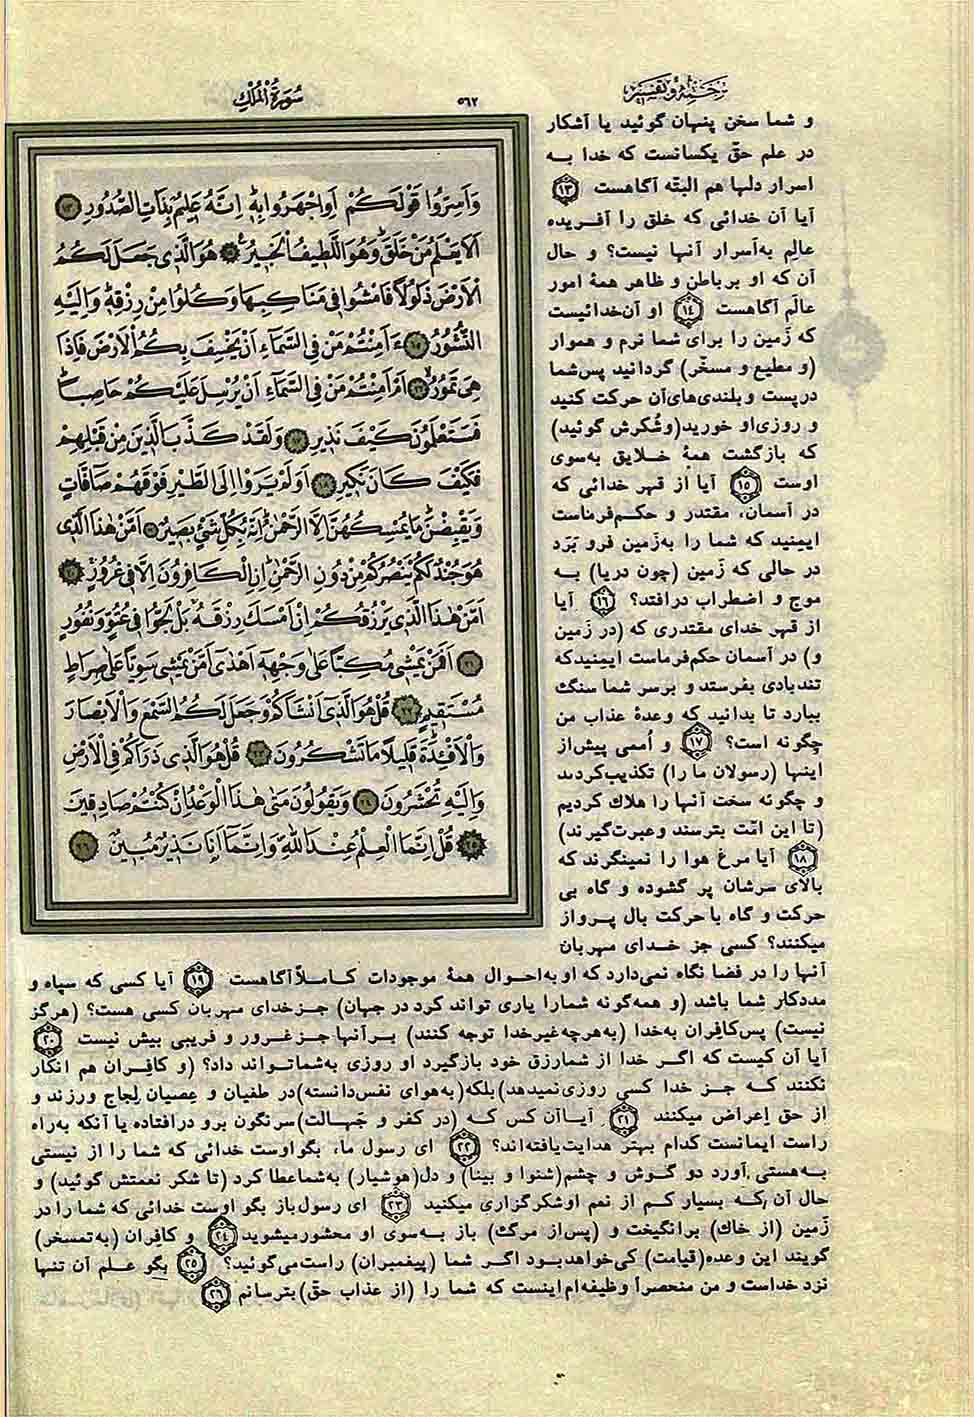 ترجمه و تفسیر
۵۶۲
سُورَةُ الْمُلْكِ
وَاَسِرُّوا قَوْلَكُمْ اَوِاجْهَرُوا بِهٖ اِنَّهُ عَلِيمٌ بِذَاتِ الصُّدُورِ ۱۳
اَلَا يَعْلَمُ مَنْ خَلَقَ وَهُوَ اللَّطِيفُ الْخَبِيرُ ۱۴ هُوَ الَّذِي جَعَلَ لَكُمُ
الْاَرْضَ ذَلُولًا فَامْشُوا فِي مَنَاكِبِهَا وَكُلُوا مِنْ رِزْقِهٖ وَاِلَيْهِ
النُّشُورُ ۱۵ ءَاَمِنْتُمْ مَنْ فِي السَّمَاءِ اَنْ يَخْسِفَ بِكُمُ الْاَرْضَ فَاِذَا
هِيَ تَمُورُ ۱۶ اَمْ اَمِنْتُمْ مَنْ فِي السَّمَاءِ اَنْ يُرْسِلَ عَلَيْكُمْ حَاصِبًا
فَسَتَعْلَمُونَ كَيْفَ نَذِيرِ ۱۷ وَلَقَدْ كَذَّبَ الَّذِينَ مِنْ قَبْلِهِمْ
فَكَيْفَ كَانَ نَكِيرِ ۱۸ اَوَلَمْ يَرَوْا اِلَى الطَّيْرِ فَوْقَهُمْ صَافَّاتٍ
وَيَقْبِضْنَ مَا يُمْسِكُهُنَّ اِلَّا الرَّحْمٰنُ اِنَّهُ بِكُلِّ شَيْءٍ بَصِيرٌ ۱۹ اَمَّنْ هٰذَا الَّذِي
هُوَ جُنْدٌ لَكُمْ يَنْصُرُكُمْ مِنْ دُونِ الرَّحْمٰنِ اِنِ الْكَافِرُونَ اِلَّا فِي غُرُورٍ ۲۰
اَمَّنْ هٰذَا الَّذِي يَرْزُقُكُمْ اِنْ اَمْسَكَ رِزْقَهُ بَلْ لَجُّوا فِي عُتُوٍّ وَنُفُورٍ
۲۱ اَفَمَنْ يَمْشِي مُكِبًّا عَلٰى وَجْهِهٖ اَهْدٰى اَمَّنْ يَمْشِي سَوِيًّا عَلٰى صِرَاطٍ
مُسْتَقِيمٍ ۲۲ قُلْ هُوَ الَّذِي اَنْشَاَكُمْ وَجَعَلَ لَكُمُ السَّمْعَ وَالْاَبْصَارَ
وَالْاَفْئِدَةَ قَلِيلًا مَا تَشْكُرُونَ ۲۳ قُلْ هُوَ الَّذِي ذَرَاَكُمْ فِي الْاَرْضِ
وَاِلَيْهِ تُحْشَرُونَ ۲۴ وَيَقُولُونَ مَتٰى هٰذَا الْوَعْدُ اِنْ كُنْتُمْ صَادِقِينَ
۲۵ قُلْ اِنَّمَا الْعِلْمُ عِنْدَ اللّٰهِ وَاِنَّمَا اَنَا نَذِيرٌ مُبِينٌ ۲۶
و شما سخن پنهان گوئید یا آشکار
در علم حقّ یکسانست که خدا به
اسرار دلها هم البتّه آگاهست ۱۳
آیا آن خدائی که خلق را آفریده
عالِم به‌اسرار آنها نیست؟ و حال
آن که او بر باطن و ظاهر همهٔ امور
عالَم آگاهست ۱۴ او آن خدائیست
که زَمین را برای شما نرم و هموار
(و مطیع و مسخّر) گردانید پس شما
در پست و بلندی‌های آن حرکت کنید
و روزی او خورید (و شُکرش گوئید)
که بازگشت همهٔ خلایق به‌سوی
اوست ۱۵ آیا از قهر خدائی که
در آسمان، مقتدر و حکم‌فرماست
ایمنید که شما را به‌زَمین فرو بَرَد
در حالی که زَمین (چون دریا) به
موج و اضطراب درافتد؟ ۱۶ آیا
از قهر خدای مقتدری که (در زَمین
و) در آسمان حکم‌فرماست ایمنیدکه
تندبادی بفرستد و برسر شما سنگ
ببارد تا بدانید که وعدهٔ عذاب من
چگونه است؟ ۱۷ و اُممی پیش از
اینها (رسولان ما را) تکذیب کردند
و چگونه سخت آنها را هلاک کردیم
(تا این امّت بترسند و عبرت گیرند)
۱۸ آیا مرغ هوا را نمینگرند که
بالای سرشان پر گشوده و گاه بی
حرکت و گاه با حرکت بال پرواز
میکنند؟ کسی جز خدای مهربان
آنها را در فضا نگاه نمی‌دارد که او به‌احوال همهٔ موجودات کاملاً آگاهست ۱۹ آیا کسی که سپاه و
مددکار شما باشد (و همه‌گونه شما را یاری تواند کرد در جهان) جز خدای مهربان کسی هست؟ (هرگز
نیست) پس کافِران به‌خدا (به‌هرچه غیر خدا توجه کنند) بر آنها جز غرور و فریبی بیش نیست ۲۰
آیا آن کیست که اگر خدا از شما رزق خود بازگیرد او روزی به‌شما تواند داد؟ (و کافِران هم انکار
نکنند که جز خدا کسی روزی نمیدهد) بلکه (به‌هوای نفس دانسته) در طغیان و عِصیان لِجاج ورزند و
از حق اِعراض میکنند ۲۱ آیا آن کس که (در کفر و جَهالت) سرنگون برو درافتاده یا آنکه به‌راه
راست ایمانست کدام بهتر هدایت یافته‌اند؟ ۲۲ ای رسول ما، بگو اوست خدائی که شما را از نیستی
به‌هستی آورد دو گوش و چشم (شنوا و بینا) و دل (هوشیار) به‌شما عطا کرد (تا شکر نعمتش گوئید) و
حال آن که بسیار کم از نعم او شکرگزاری میکنید ۲۳ ای رسول باز بگو اوست خدائی که شما را در
زَمین (از خاك) برانگیخت و (پس از مرگ) باز به‌سوی او محشور میشوید ۲۴ و کافِران (به‌تمسخر)
گویند این وعده (قیامت) کی خواهد بود اگر شما (پیغمبران) راست می‌گوئید؟ ۲۵ بگو علم آن تنها
نزد خداست و من منحصراً وظیفه‌ام اینست که شما را (از عذاب حقّ) بترسانم ۲۶